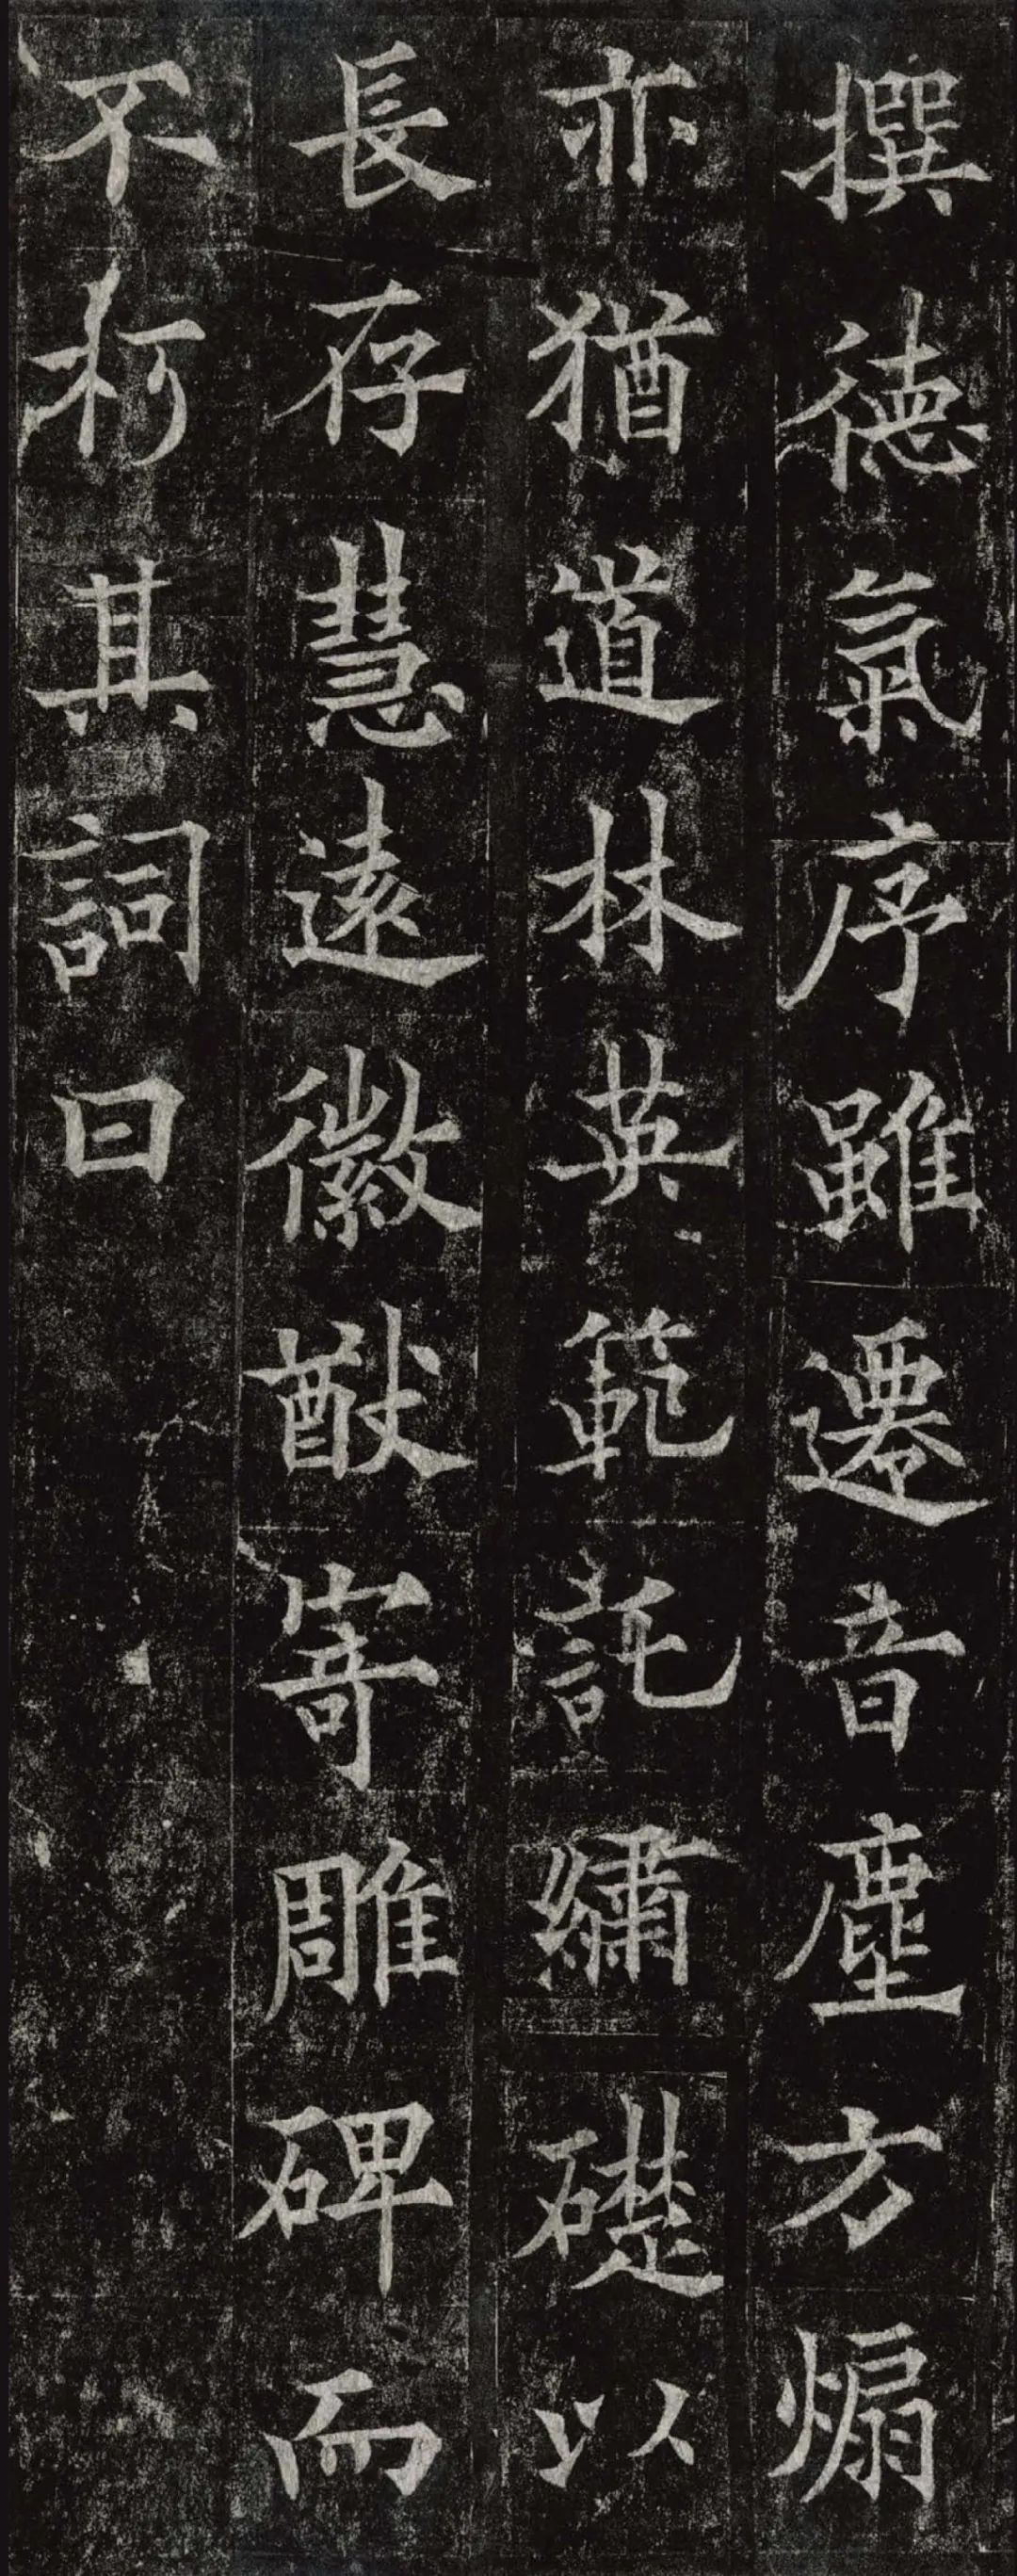 撰德氣序雖遷音塵方煽
亦猶道林英範託繡礎以
長存慧遠徽猷寄雕碑而
不朽其詞曰